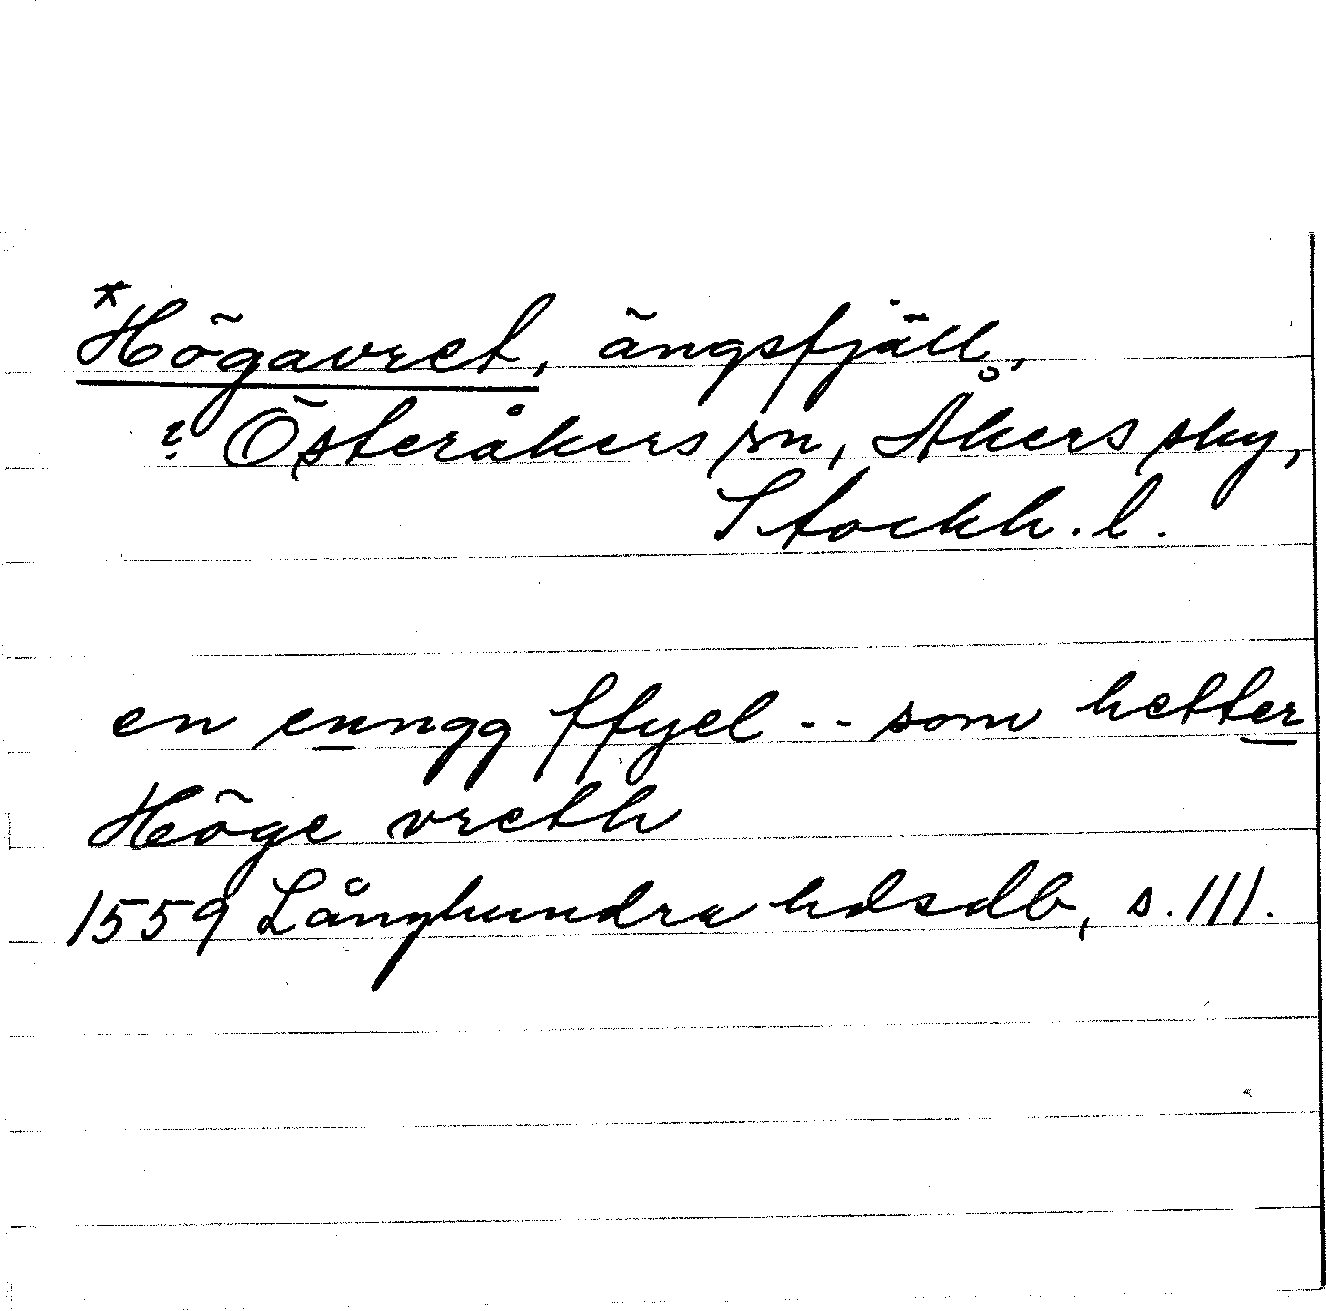 *Högavret, ängsfjäll,
? Österåkers sn, Åkers sky,
Stockh. l.
en enngg ffyel -- som hetter
Höge vreth
1559 Långhundra hdsdb, s. 111.